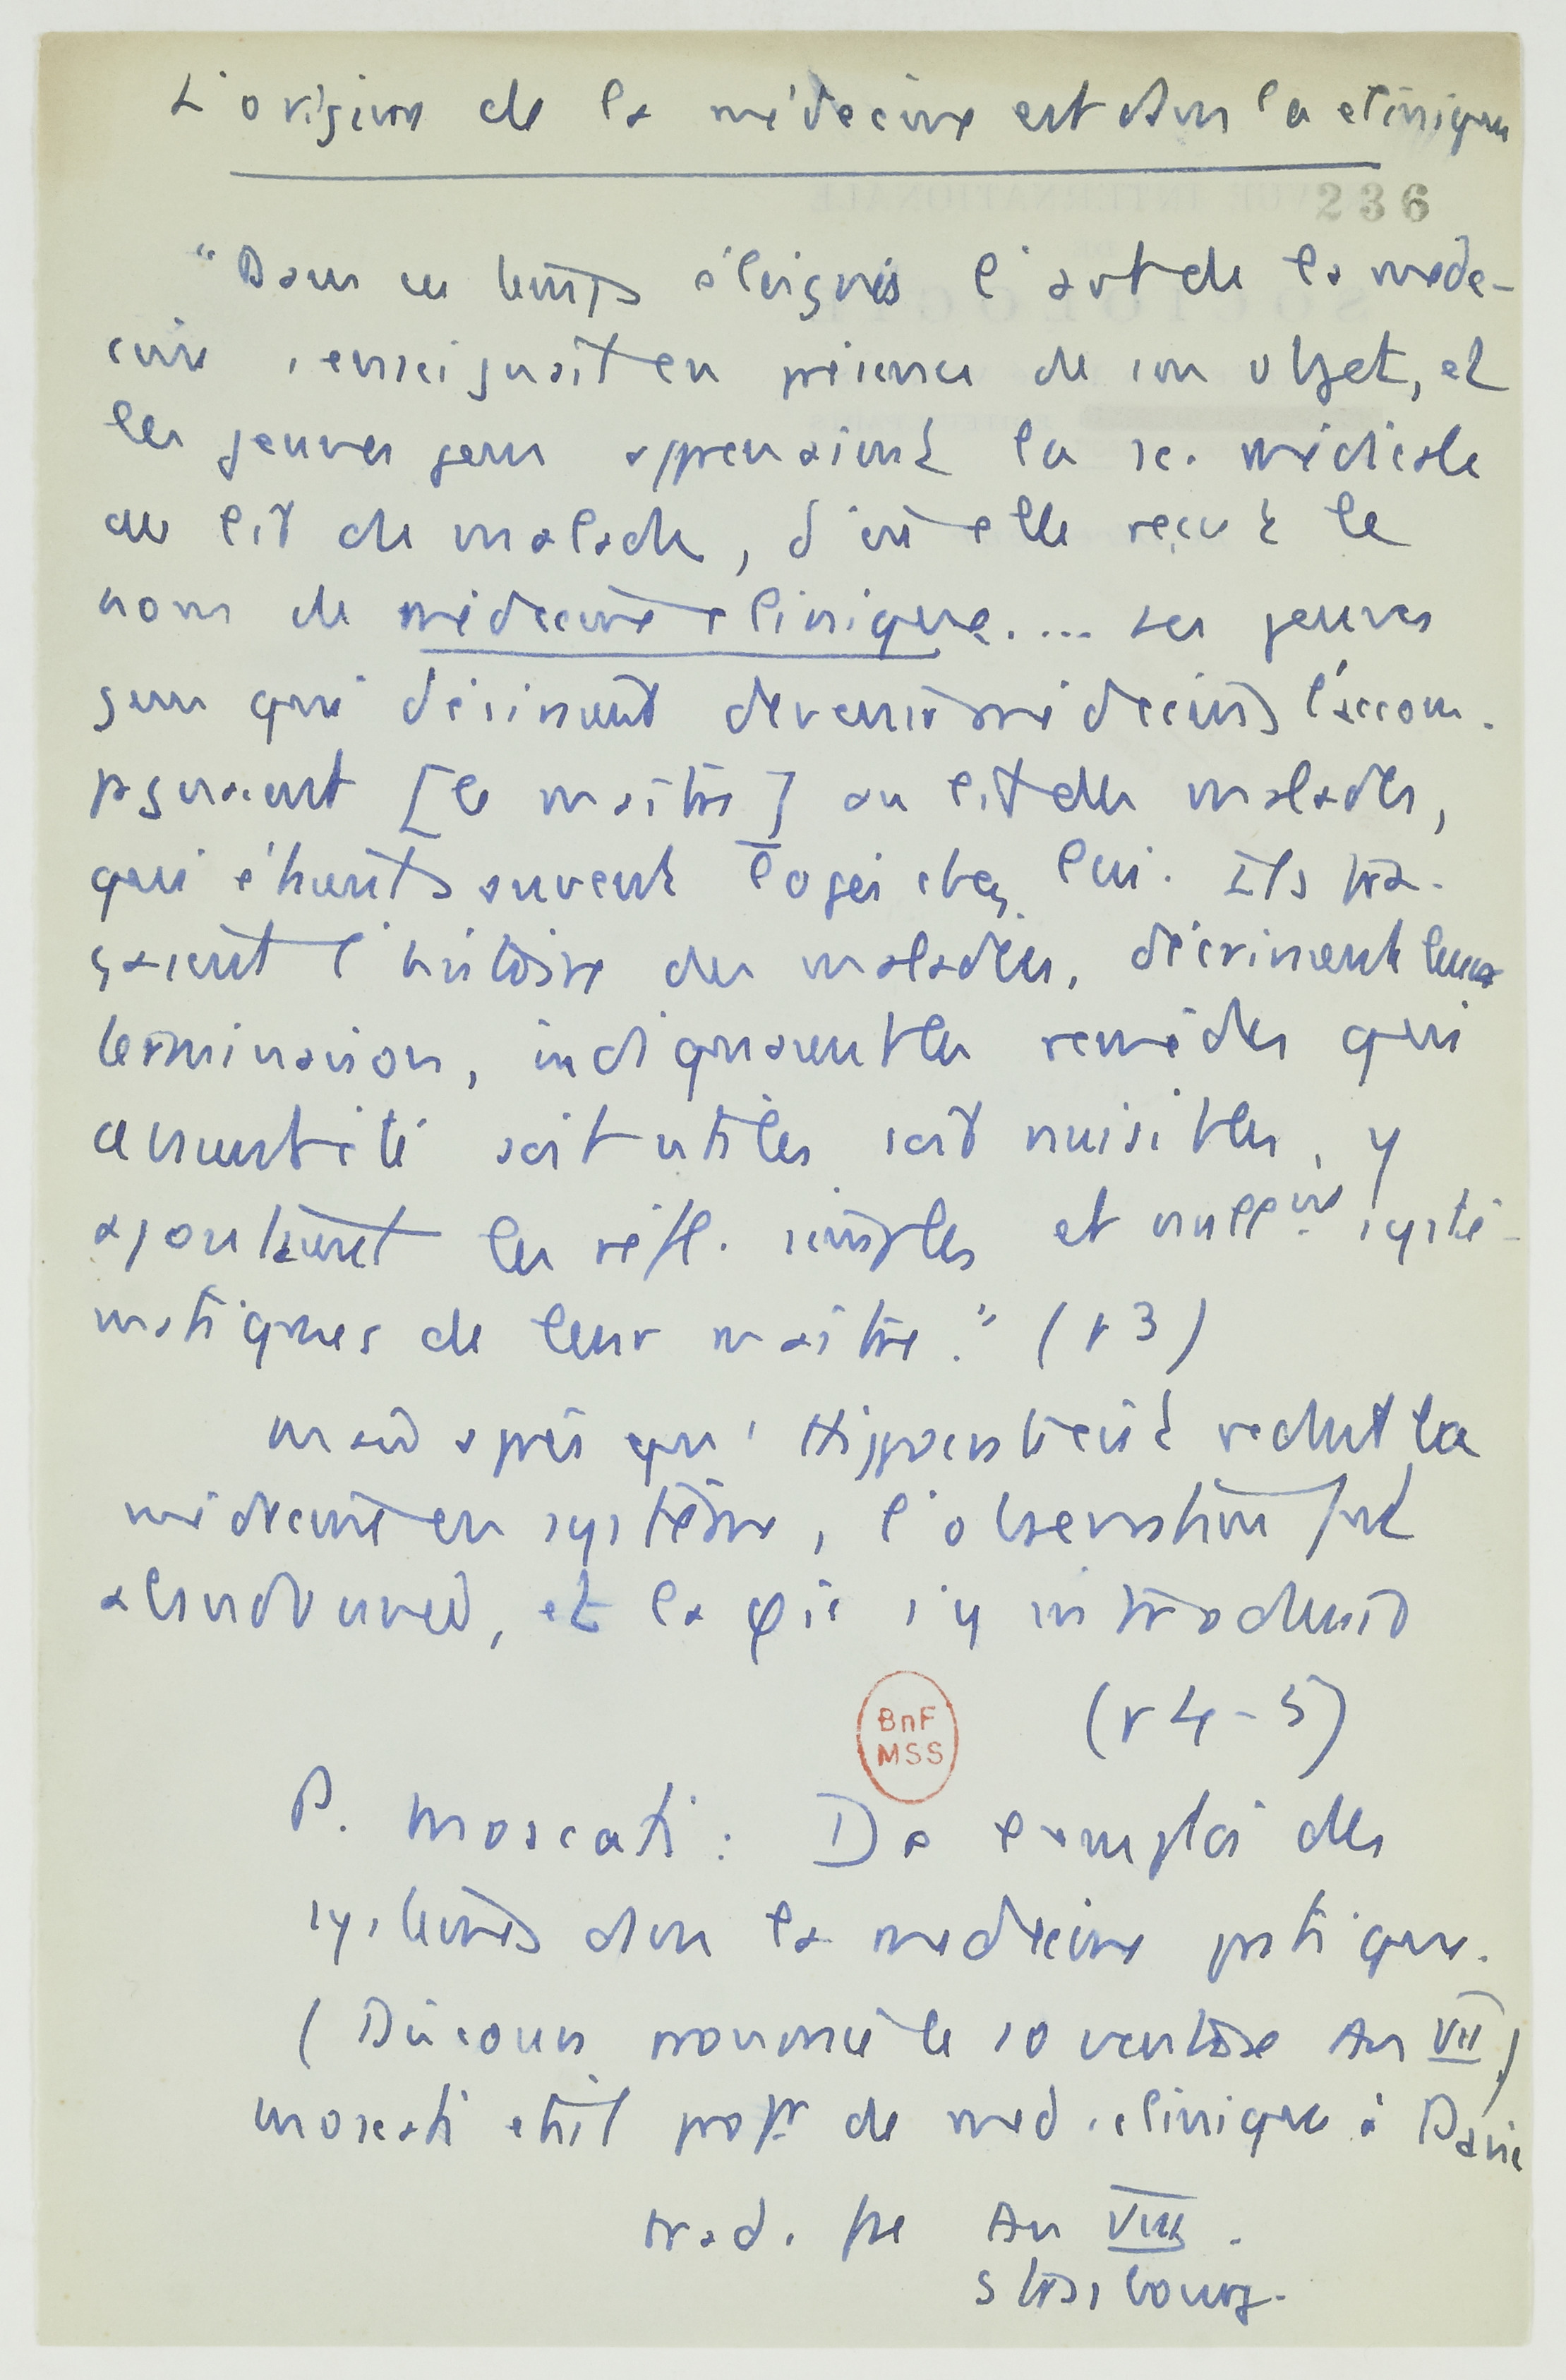 L'origine de la médecine est dans la clinique
236
"Dans ces temps éloignés l'art de la méde-
cine s'enseignait en présence de son objet, et
les jeunes gens apprenaient la sc. médicale
au lit du malade, d'où elle reçut le
nom de médecine clinique.... Les jeunes
gens qui désiraient devenir médecins l'accom-
pagnaient [le maître] au lit des malades,
qui étaient souvent logés chez lui. Ils tra-
çaient l'histoire des maladies, décrivaient leur
terminaison, indiquaient les remèdes qui
avaient été soit utiles soit nuisibles, y
ajoutaient les réfl. simples et nullement systé-
matiques de leur maître." (p 3)
Mais après qu'Hippocrate eut réduit la
médecine en système, l'observation fut
abandonnée, et la φie s'y introduisit
(p 4-5)
BnF
MSS
P. Moscati : De l'emploi des
systèmes dans la médecine pratique.
(Discours prononcé le 10 ventôse An VII)
Moscati était profr de med. clinique à Pavie
trad. fse An VIII.
Strasbourg.